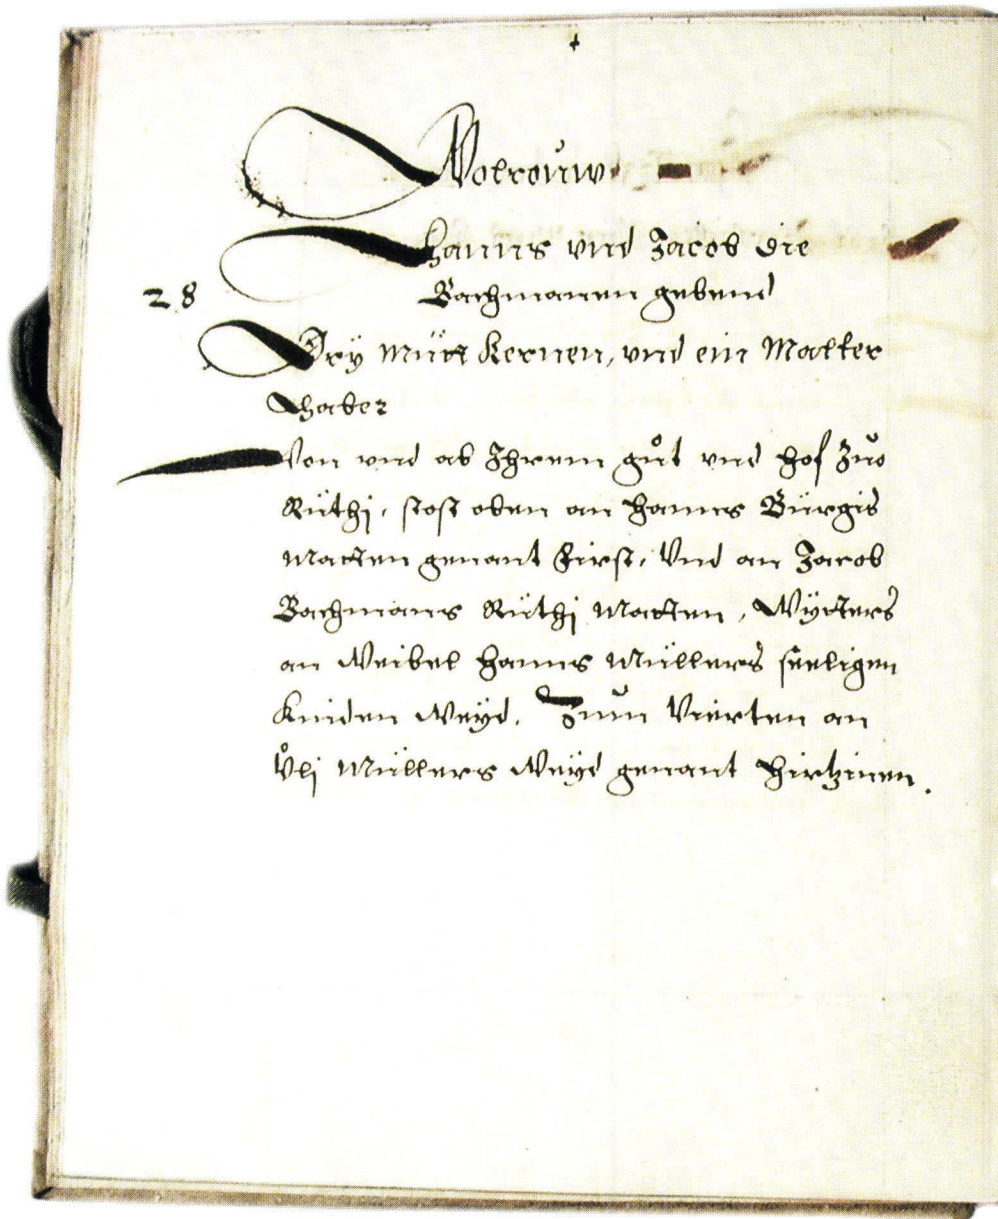 Wolrouw
Hanns vnd Jacob die
28 Bachmanen gebend
Dry Mütt Kernen, vnd ein Malter
Haber
Von vnd ab Ihrem gůt vnd hof Zuo
Rüthj, stost oben an Hanns Bürgis
Matten genant First, Vnd an Jacob
Bachmans Rüthj Matten, Wytters
an Weibel Hanns Müllers seeligen
Kinden Weyd. Zum Vierten an
Ůlj Müllers Weyd genant Hirtzinen.